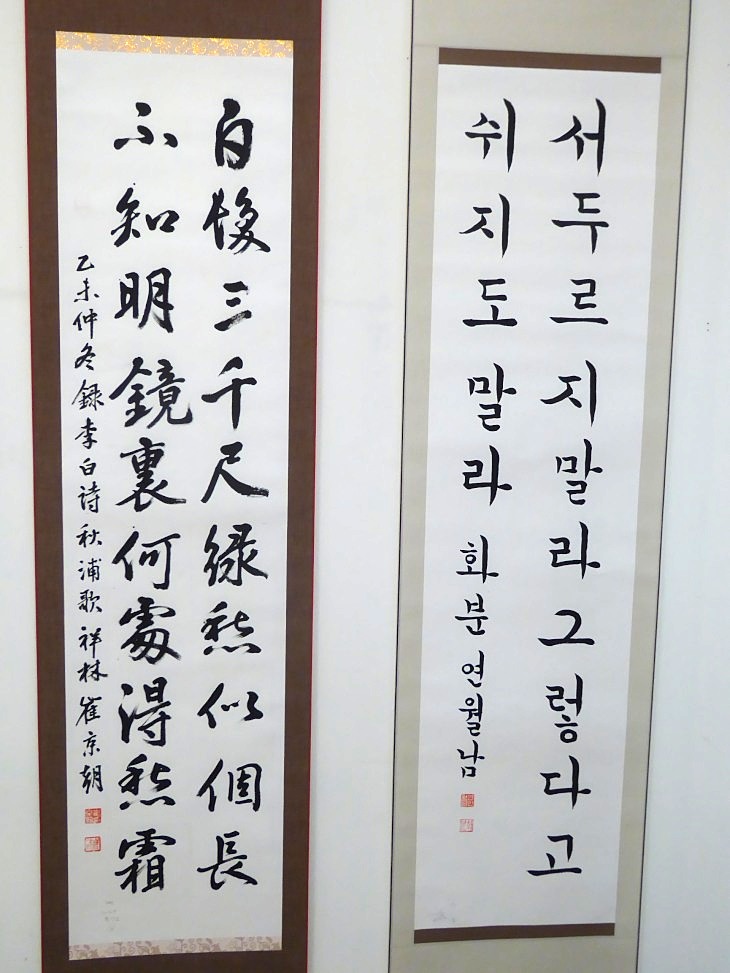 서두르지말라그렇다고
쉬지도말라 화분 연월남
白髮三千尺緣愁似個長
不知明鏡裏何處得愁霜
乙未仲冬録李白詩秋浦歌 祥林 崔京朝